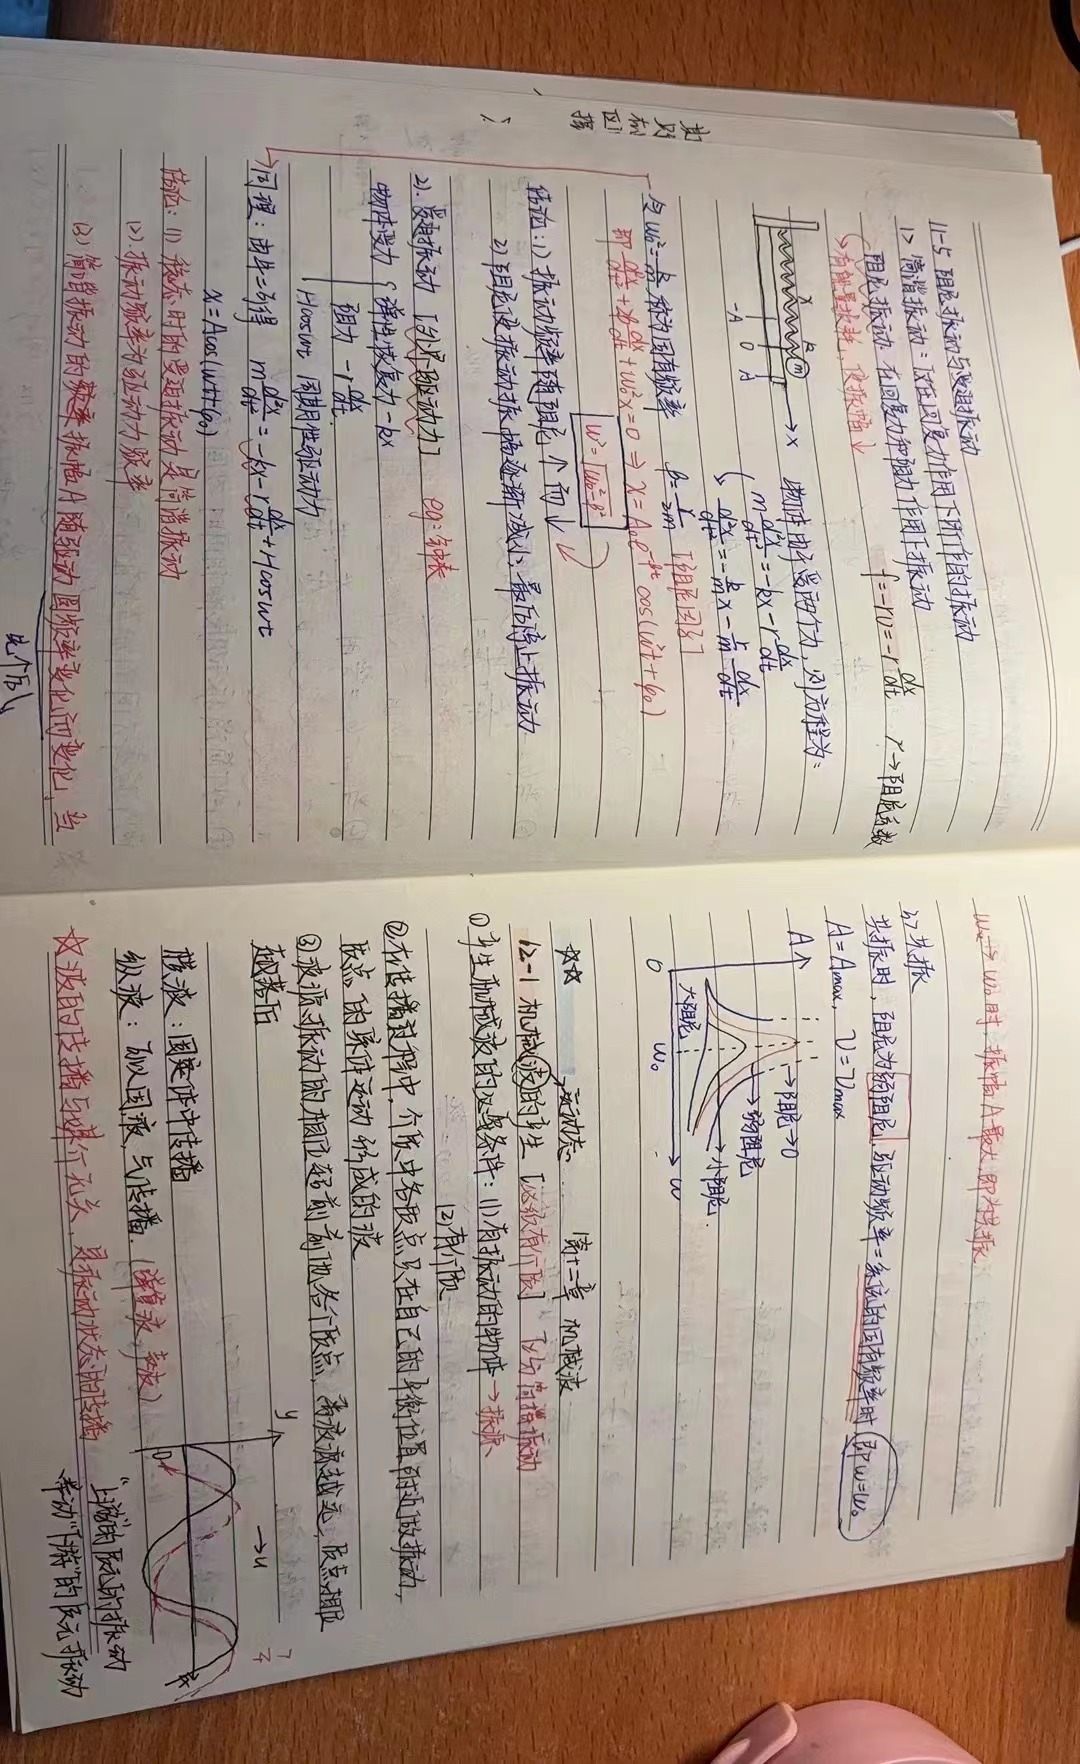 11-5 阻尼振动与受迫振动
1> 简谐振动：仅在回复力作用下所作的振动
阻尼振动：在回复力和阻力作用下振动
f=-rv=-r dx/dt  r→阻尼系数
→有能量损耗，使振幅↓
x k m x
-A O A
物体由于受两个力，则方程为：
m d²x/dt² = -kx - r dx/dt
d²x/dt² = -k/m x - r/m dx/dt
令 w₀²=k/m 称为固有频率  β=r/2m [阻尼因子]
即 d²x/dt² + 2β dx/dt + w₀²x=0 ⇒ x=A₀e^-βt cos(w't+φ₀)
w'=√w₀²-β²
结论：1) 振动频率随阻尼↑而↓
2) 阻尼使振动振幅逐渐减小，最后停止振动
2). 受迫振动 [外界驱动力]  eg：钟表
物体受力 { 弹性恢复力 -kx
阻力 -r dx/dt.
Hcoswt 周期性驱动力
同理：由牛二可得  m d²x/dt² = -kx - r dx/dt + Hcoswt
x=Acos(wt+φ₀)
结论：(1) 稳态时的受迫振动是简谐振动
(2). 振动频率为驱动力频率
(3) 简谐振动的频率振幅A随驱动圆频率变化而变化，当
先个后↓
→ w₀时，振幅A最大，即为共振
3> 共振
共振时，阻尼为弱阻尼，驱动频率=系统的固有频率时 即w=w₀
A=Amax, v=vmax
A
→阻尼→0
→弱阻尼
→小阻尼.
大阻尼
O w₀ w
☆☆ →运动态  第十二章 机械波
12-1 机械波的产生 [必须有介质] 区分简谐振动
① 产生机械波的必要条件：(1) 有振动的物体→振源
(2) 有介质
② 在传播过程中，介质中各质点只在自己的平衡位置附近做振动，
质点的集体运动形成的波
③ 波源振动的相位超前前他各个质点，离波源越远，质点相位
越落后
y →u
O
横波：固定体中传播
纵波：可以固，液，气传播. (弹簧波，声波)
☆ 波的传播与媒介无关，是振动状态的传播
"上游"的质元的振动
带动"下游"的质元振动